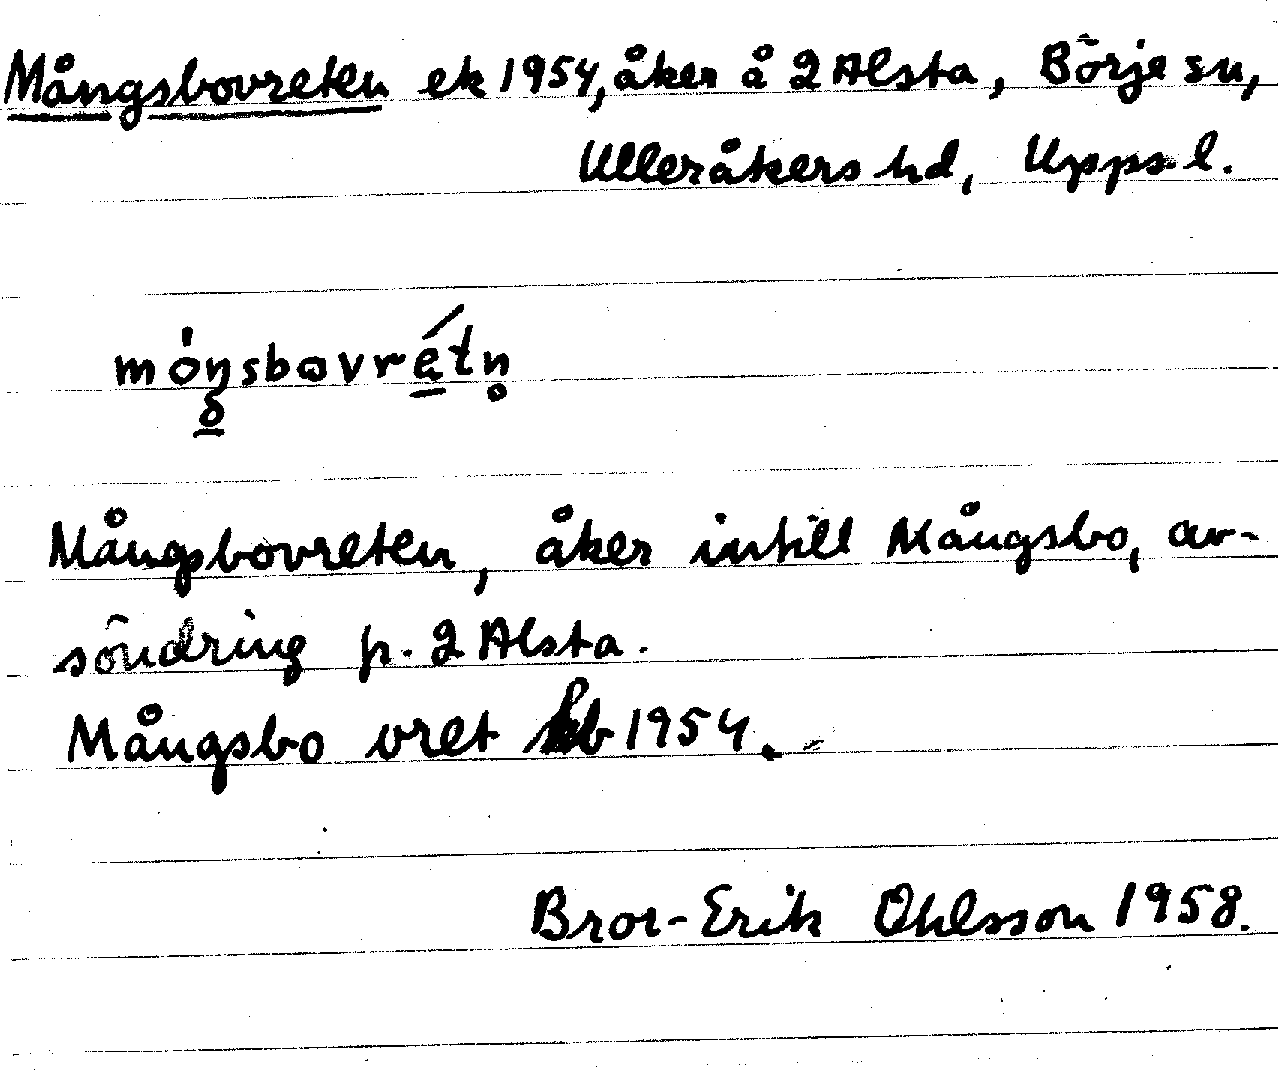 Mångsbovreten ek 1954, åker å 2 Alsta, Börje sn,
Ulleråkers hd, Upps. l.
móŋsbovrétn̥
Mångsbovreten, åker intill Mångsbo, av-
söndring fr. 2 Alsta.
Mångsbo vret 1954.
Bror-Erik Ohlsson 1958.